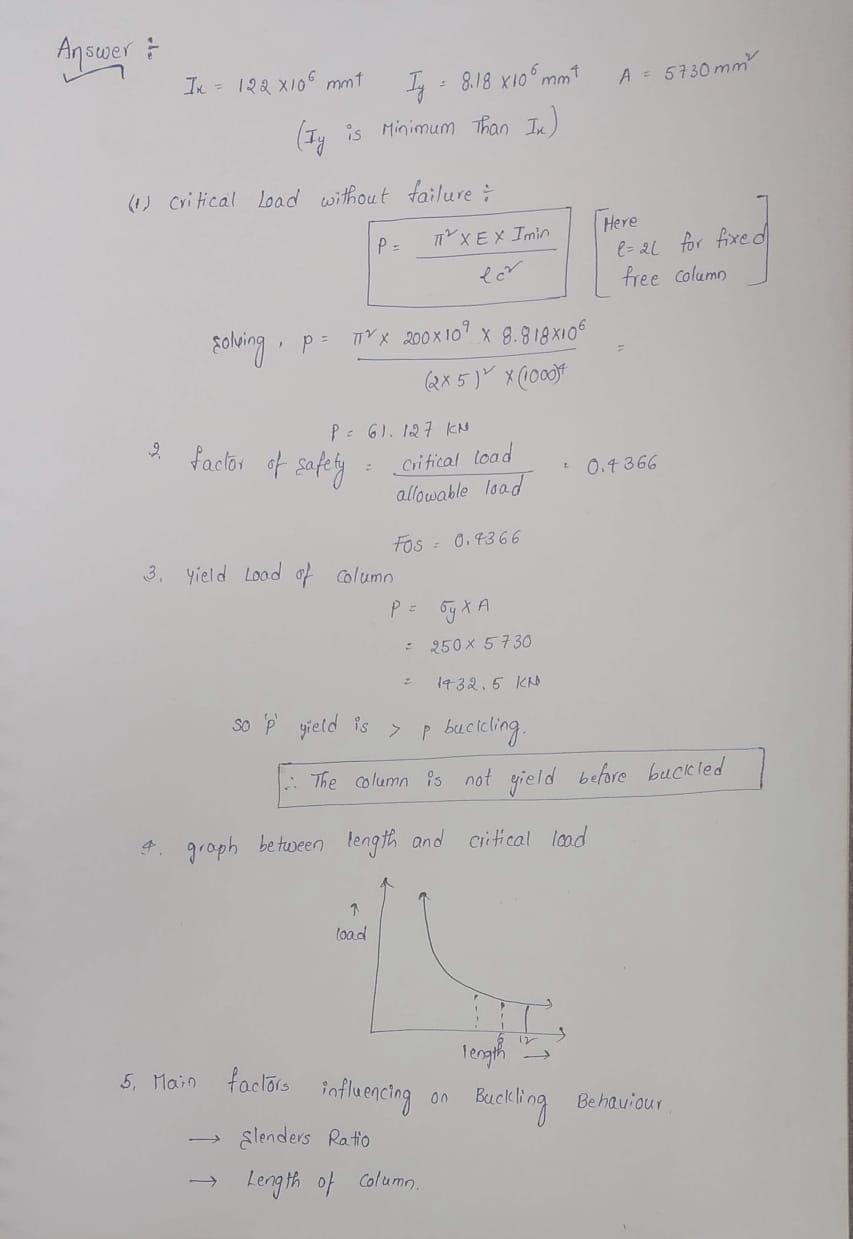 Answer :-
Ix = 122 x10⁶ mm⁴ Iy = 8.18 x10⁶ mm⁴ A = 5730 mm²
(Iy is Minimum Than Ix)
(1) Critical Load without failure :-
P = π² x E x Imin / le²
[Here l = 2L for fixed free column]
Solving, p = π² x 200x10⁹ x 8.818x10⁶ / (2x5)² x (1000)⁴ =
P = 61.127 kN
2. factor of safety = critical load / allowable load = 0.4366
FOS = 0.4366
3. Yield Load of Column
P = σy x A
= 250 x 5730
= 1432.5 kN
So 'p' yield is > p buckling.
∴ The column is not yield before buckled
4. graph between length and critical load
↑
load
6 12
length →
5. Main factors influencing on Buckling Behaviour
→ Slenders Ratio
→ Length of Column.